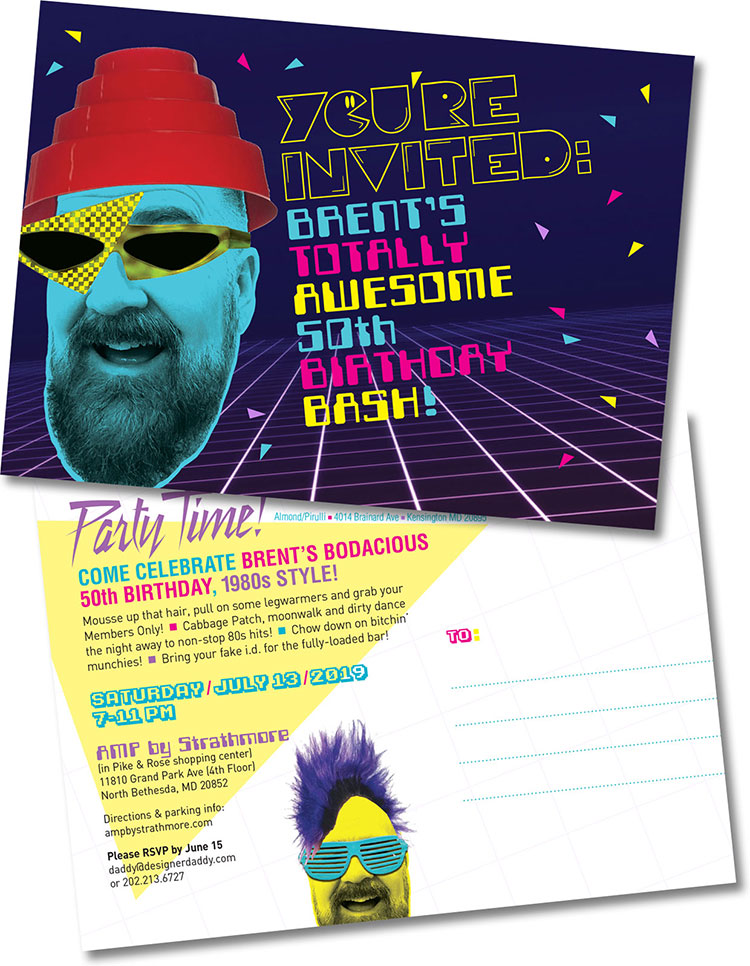 YOU'RE
INVITED:
BRENT'S
TOTALLY
AWESOME
50th
BIRTHDAY
BASH!
Party Time!
Almond/Pirulli ■ 4014 Brainard Ave ■ Kensington MD 20895
COME CELEBRATE BRENT'S BODACIOUS
50th BIRTHDAY, 1980s STYLE!
Mousse up that hair, pull on some legwarmers and grab your
Members Only! ■ Cabbage Patch, moonwalk and dirty dance
the night away to non-stop 80s hits! ■ Chow down on bitchin'
munchies! ■ Bring your fake i.d. for the fully-loaded bar!
SATURDAY/JULY 13/2019
7-11 PM
AMP by Strathmore
(in Pike & Rose shopping center)
11810 Grand Park Ave (4th Floor)
North Bethesda, MD 20852
Directions & parking info:
ampbystrathmore.com
Please RSVP by June 15
daddy@designerdaddy.com
or 202.213.6727
TO: